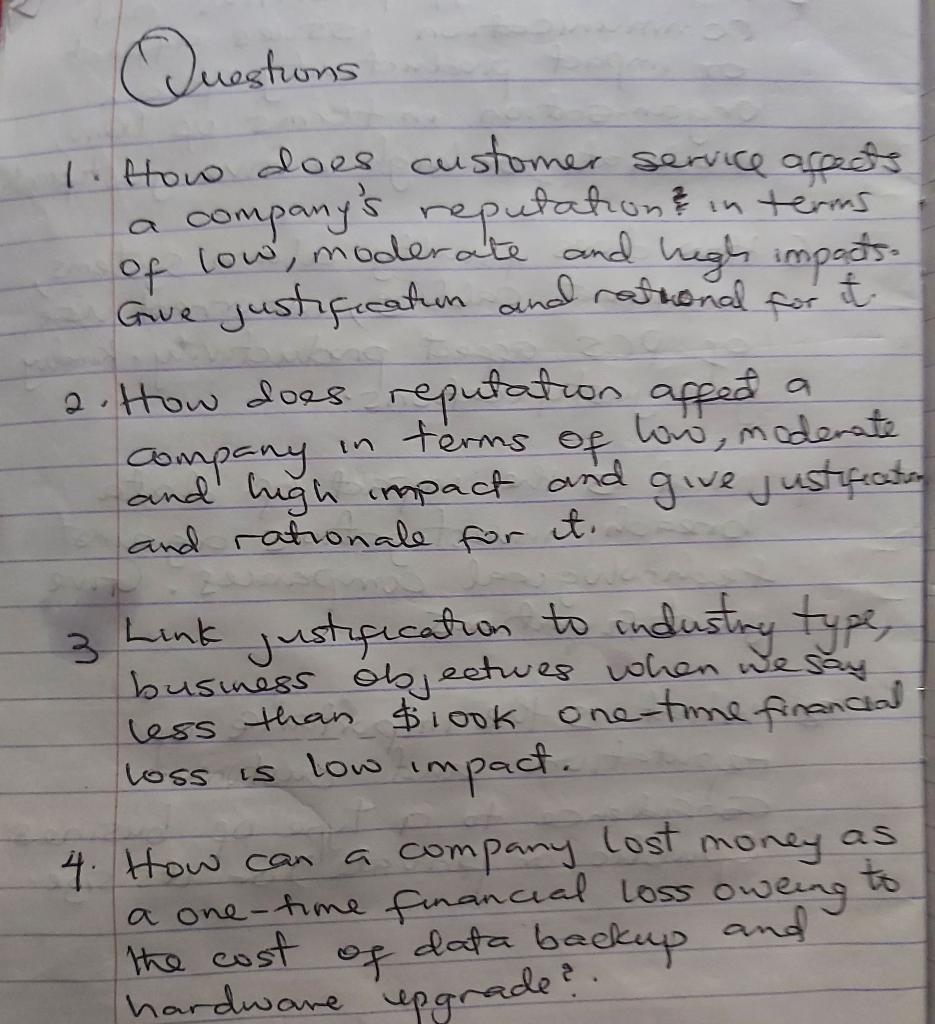 Questions
1. How does customer service affects
a company's reputation? in terms
of low, moderate and high impacts.
Give justification and rational for it.
2. How does reputation affect a
company in terms of low, moderate
and high impact and give justification
and rationale for it.
3 Link justification to industry type,
business objectives when we say
less than $100K one-time financial
loss is low impact.
4. How can a company lost money as
a one-time financial loss oweing to
the cost of data backup and
hardware upgrade?.